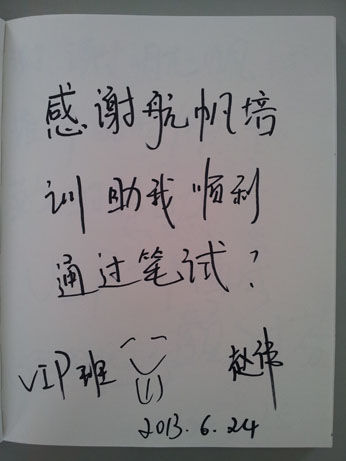 感谢航帆培
训助我顺利
通过笔试!
VIP班 赵伟
2013.6.24